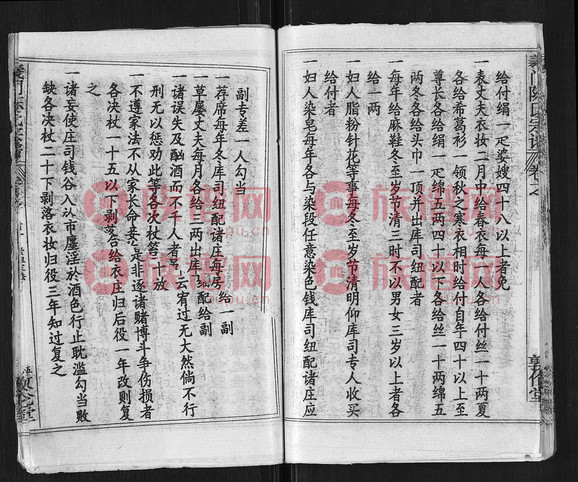 给付绢一疋娶嫂四十入以上者免
一表丈夫衣妆二月中给春衣每一人各给付丝一十两夏
各给希葛衫一领秋之寒衣相时给付自年四十以上至
尊长各给绢一疋绵五两四十以下各给丝一十两绵五
两冬各给头巾一顶并出库司纽配者
一每年给麻鞋冬至岁节清三时不以男女三岁以上者各
给一两
一妇人脂粉针花等事每冬至岁节清明仰库司专人收买
给付者
一妇人染皂每年各与染段任意染色钱库司纽配诸庄应
副专差一人勾当
一荐席每年冬库司纽配诸庄每房给一副
一草屦丈夫每月各给一两出库司纽配给副
一诸误失及酗酒而不干人者
云宥过无大然倘不行
刑无以惩劝此等各次杖笞一十放
一不遵家法不从家长命妄
是非逐诸赌博斗争伤损者
各决杖一十五以下剥落
给衣庄归后役一年改则复
之
一诸妄使庄司钱谷入认市廛淫於酒色行止耽滥勾当败
缺各决杖二十下剥落衣妆归役三年知过复之